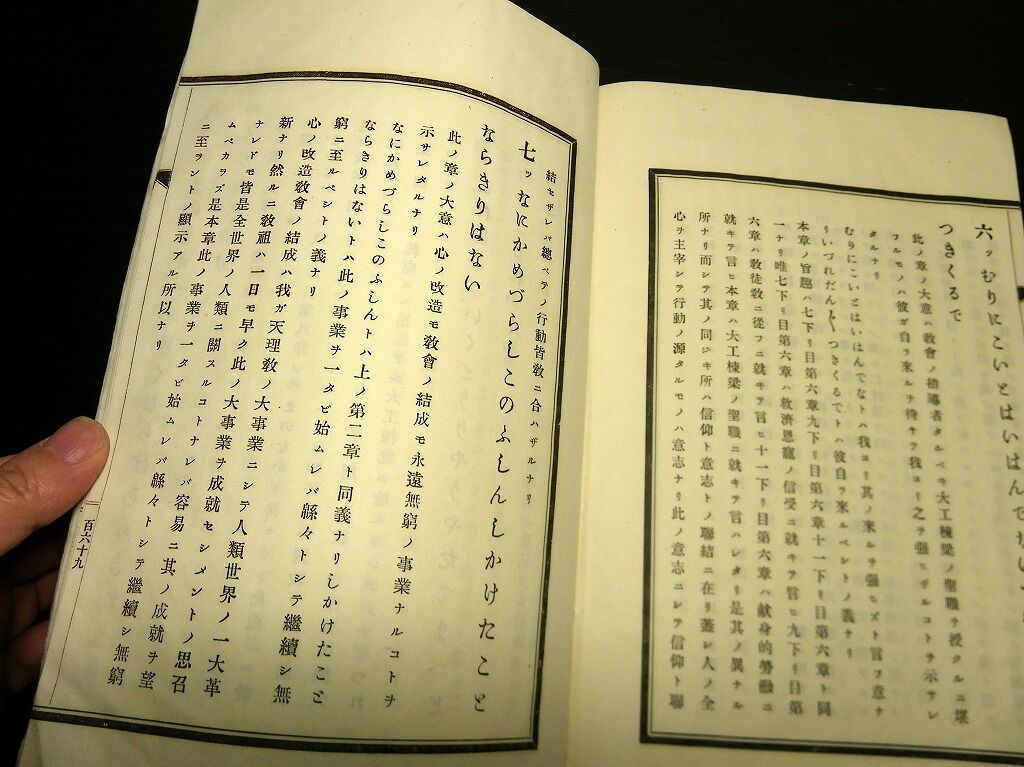 六ッむりにこいとはいはんでな
つきくるで
此ノ章ノ大意ハ教會ノ指導者タルベキ大工棟梁ノ聖職ヲ授クルニ堪
フルモノハ彼ガ自ヲ來ルヲ待チテ我ヨリ之ヲ强ヒザルコトヲ示サレ
タルナリ
むりにこいとはいはんでなトハ我ヨリ其ノ來ルヲ强ヒズト言フ意ナ
りいづれだん〳〵つきくるでトハ彼自ヲ來ルベシトノ義ナリ
本章ノ旨趣ハ七下リ目第六章九下リ目第六章十一下リ目第六章ト同
一ナリ唯七下リ目第六章ハ救濟恩寵ノ信受ニ就キテ言ヒ九下リ目第
六章ハ教徒敎ニ從フニ就キテ言ヒ十一下リ目第六章ハ献身的勞働ニ
就キテ言ヒ本章ハ大工棟梁ノ聖職ニ就キテ言ハレタリ是其ノ異ナル
所ナリ而シテ其ノ同ジキ所ハ信仰ト意志トノ聯結ニ在リ蓋シ人ノ全
心ヲ主宰シテ行動ノ源タルモノハ意志ナリ此ノ意志ニシテ信仰ト聯
結セザレバ總ベテノ行動皆敎ニ合ハザルナリ
七ッなにかめづらしこのふしんしかけたこと
ならきりはない
此ノ章ノ大意ハ心ノ改造モ敎會ノ結成モ永遠無窮ノ事業ナルコトヲ
示サレタルナリ
なにかめづらしこのふしんトハ上ノ第二章ト同義ナリしかけたこと
ならきりはないトハ此ノ事業ヲ一タビ始ムレバ緜々トシテ繼續シ無
窮ニ至ルベシトノ義ナリ
心ノ改造敎會ノ結成ハ我ガ天理敎ノ大事業ニシテ人類世界ノ一大革
新ナリ然ルニ敎祖ハ一日モ早ク此ノ大事業ヲ成就セシメントノ思召
ナレドモ皆是全世界ノ人類ニ關スルコトナレバ容易ニ其ノ成就ヲ望
ムベカラズ是本章此ノ事業ヲ一タビ始ムレバ緜々トシテ繼續シ無窮
ニ至ラントノ顯示アル所以ナリ
百六十九